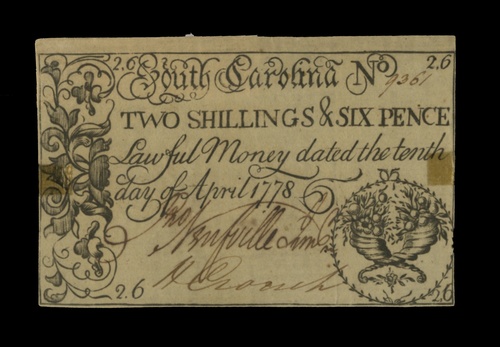 2.6 South Carolina No 9361 2.6
TWO SHILLINGS & SIX PENCE
Lawful Money dated the tenth
day of April 1778
Jno Neufville Junr
H Crouch
2.6 2.6